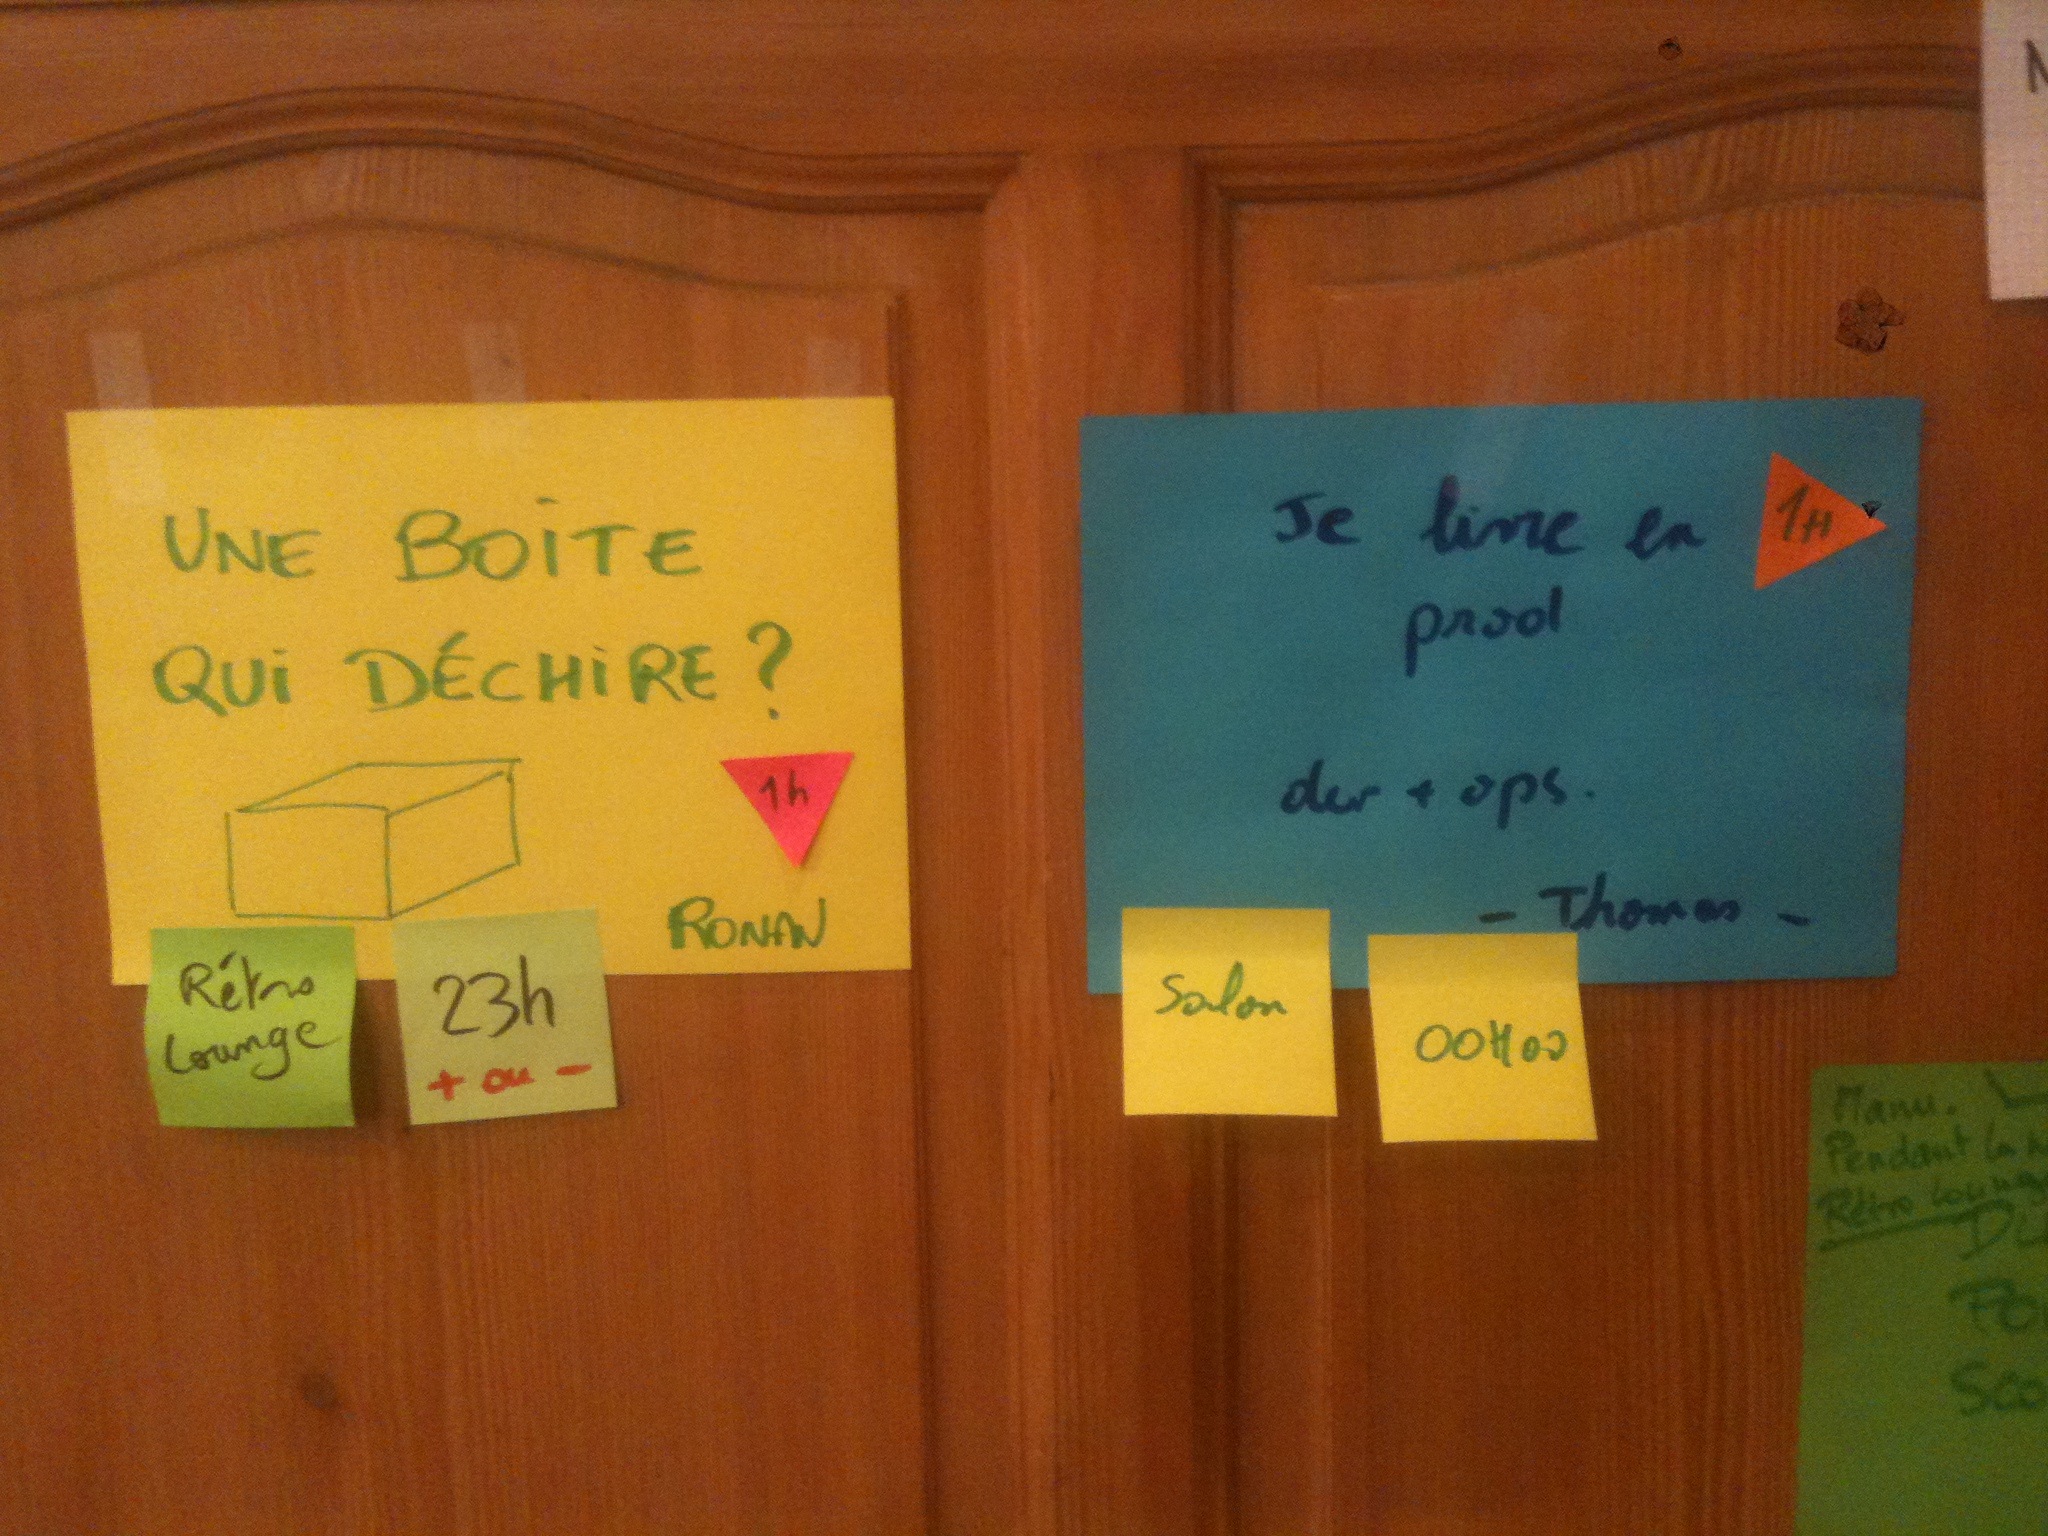 UNE BOITE
QUI DÉCHIRE ?
1h
RONAN
Rétro
Lounge
23h
+ ou -
Je livre en
prod
1H
dev + ops.
- Thomas -
Salon
00H00
Manu.
Pendant la
Rétro Lounge